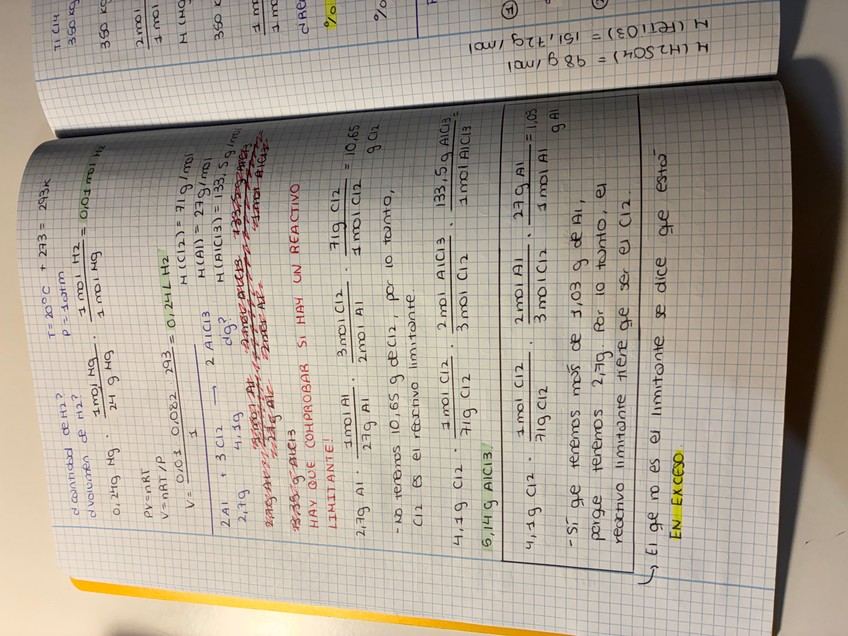 ¿cantidad de H2? T=20°C + 273 = 293K
¿volumen de H2? P=1atm
0,24g Mg · 1mol Mg / 24 g Mg · 1 mol H2 / 1 mol Mg = 0,01 mol H2
PV=nRT
V=nRT/P
V= 0,01 0,082 · 293 / 1 = 0,24L H2
2Al + 3Cl2 → 2AlCl3
2,7g 4,1g ¿g?
M(Cl2) = 71g/mol
M(Al) = 27g/mol
M(AlCl3) = 133,5g/mol
HAY QUE COMPROBAR SI HAY UN REACTIVO
LIMITANTE!
2,7g Al · 1mol Al / 27g Al · 3mol Cl2 / 2mol Al · 71g Cl2 / 1mol Cl2 = 10,65 g Cl2
-No tenemos 10,65 g de Cl2, por lo tanto,
Cl2 es el reactivo limitante.
4,1g Cl2 · 1mol Cl2 / 71g Cl2 · 2mol AlCl3 / 3mol Cl2 · 133,5g AlCl3 / 1mol AlCl3 =
5,14g AlCl3.
4,1g Cl2 · 1mol Cl2 / 71g Cl2 · 2mol Al / 3mol Cl2 · 27g Al / 1mol Al = 1,03 g Al
-Sí qe tenemos más de 1,03 g de Al,
porqe tenemos 2,7g. Por lo tanto, el
reactivo limitante tiene qe ser el Cl2
↳ El qe no es el limitante se dice qe está
EN EXCESO
TiCl4
350 kg
350 kg
2mol
1mol
M(Mg
350 k
1m
1mo
%
%
M(H2SO4) = 98 g/mol
M(FeTiO3) = 151,72g/mol
1